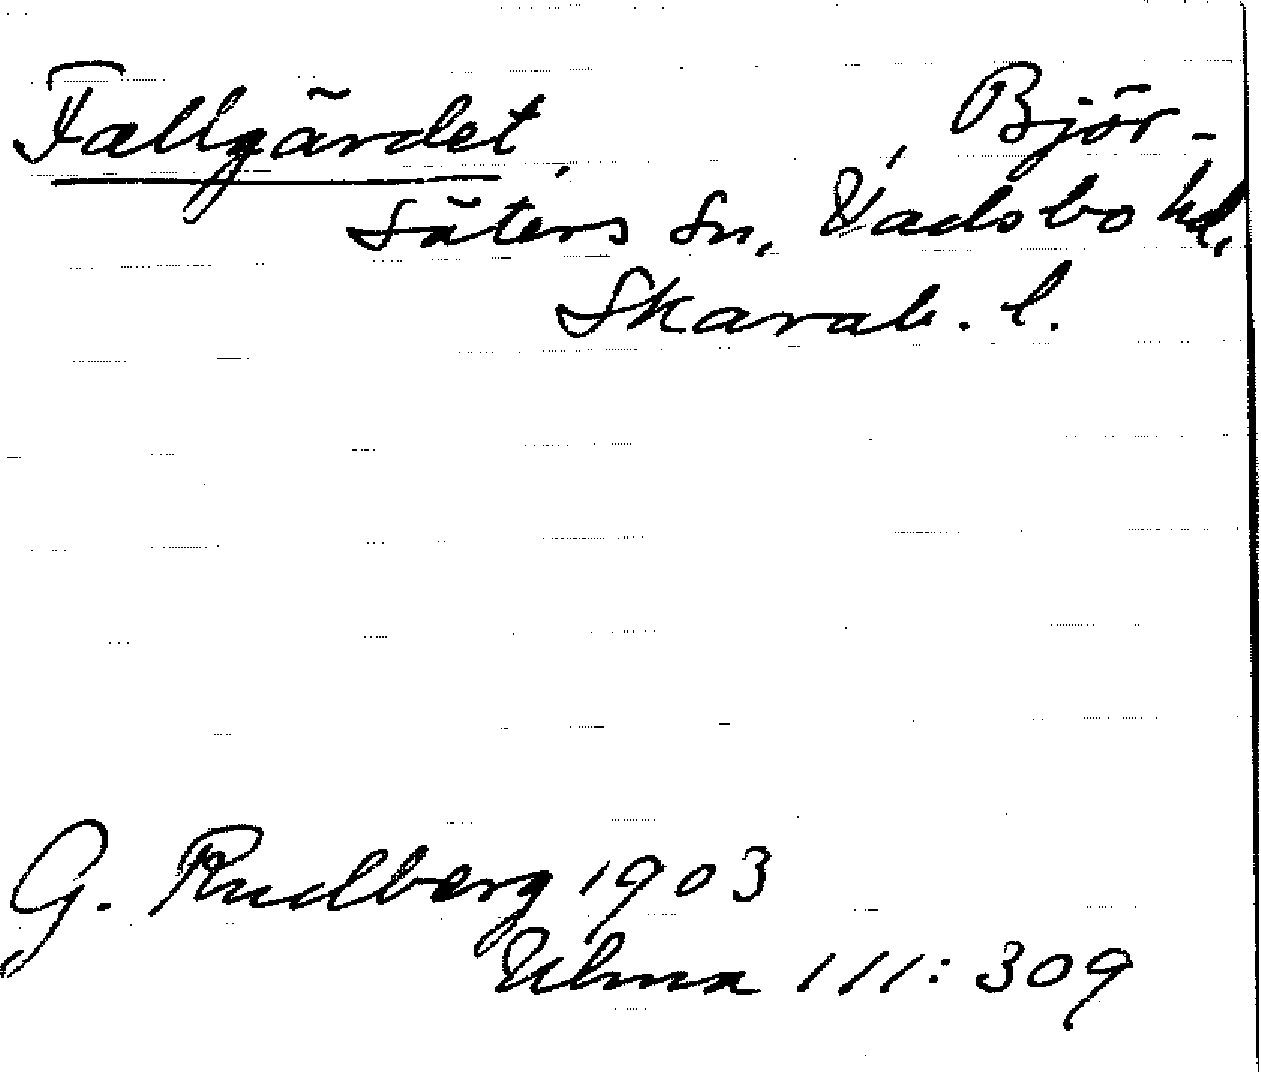 Fallgärdet, Björ-
säters sn, Vadsbo hd,
Skarab. l.
G. Rudberg 1903
Ulma 111:309